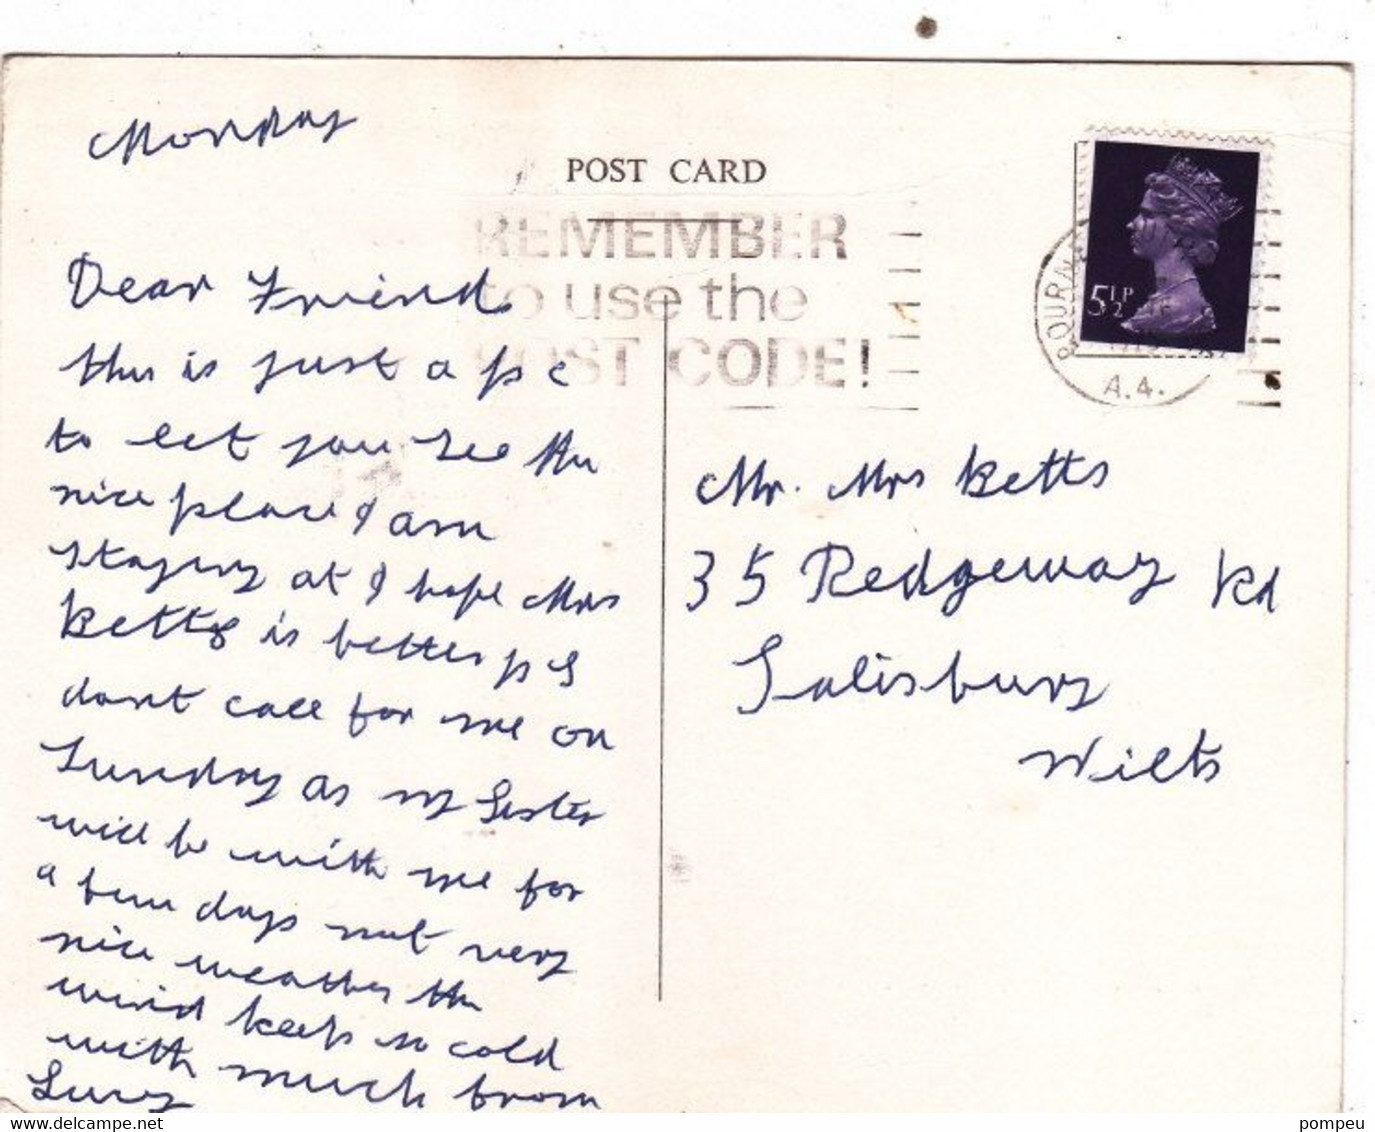 Monday
POST CARD
REMEMBER
to use the
POST CODE!
5½P
BOURNE
A.4.
Dear Friend
this is just a p c
to let you see the
nice place I am
staying at I hope Mrs
Betts is better p S
dont call for me on
Sunday as my Sister
will be with me for
a few days not very
nice weather the
wind keeps so cold
with much from
Lucy
Mr. Mrs Betts
35 Redgeway Rd
Salisbury
Wilts
pompeu